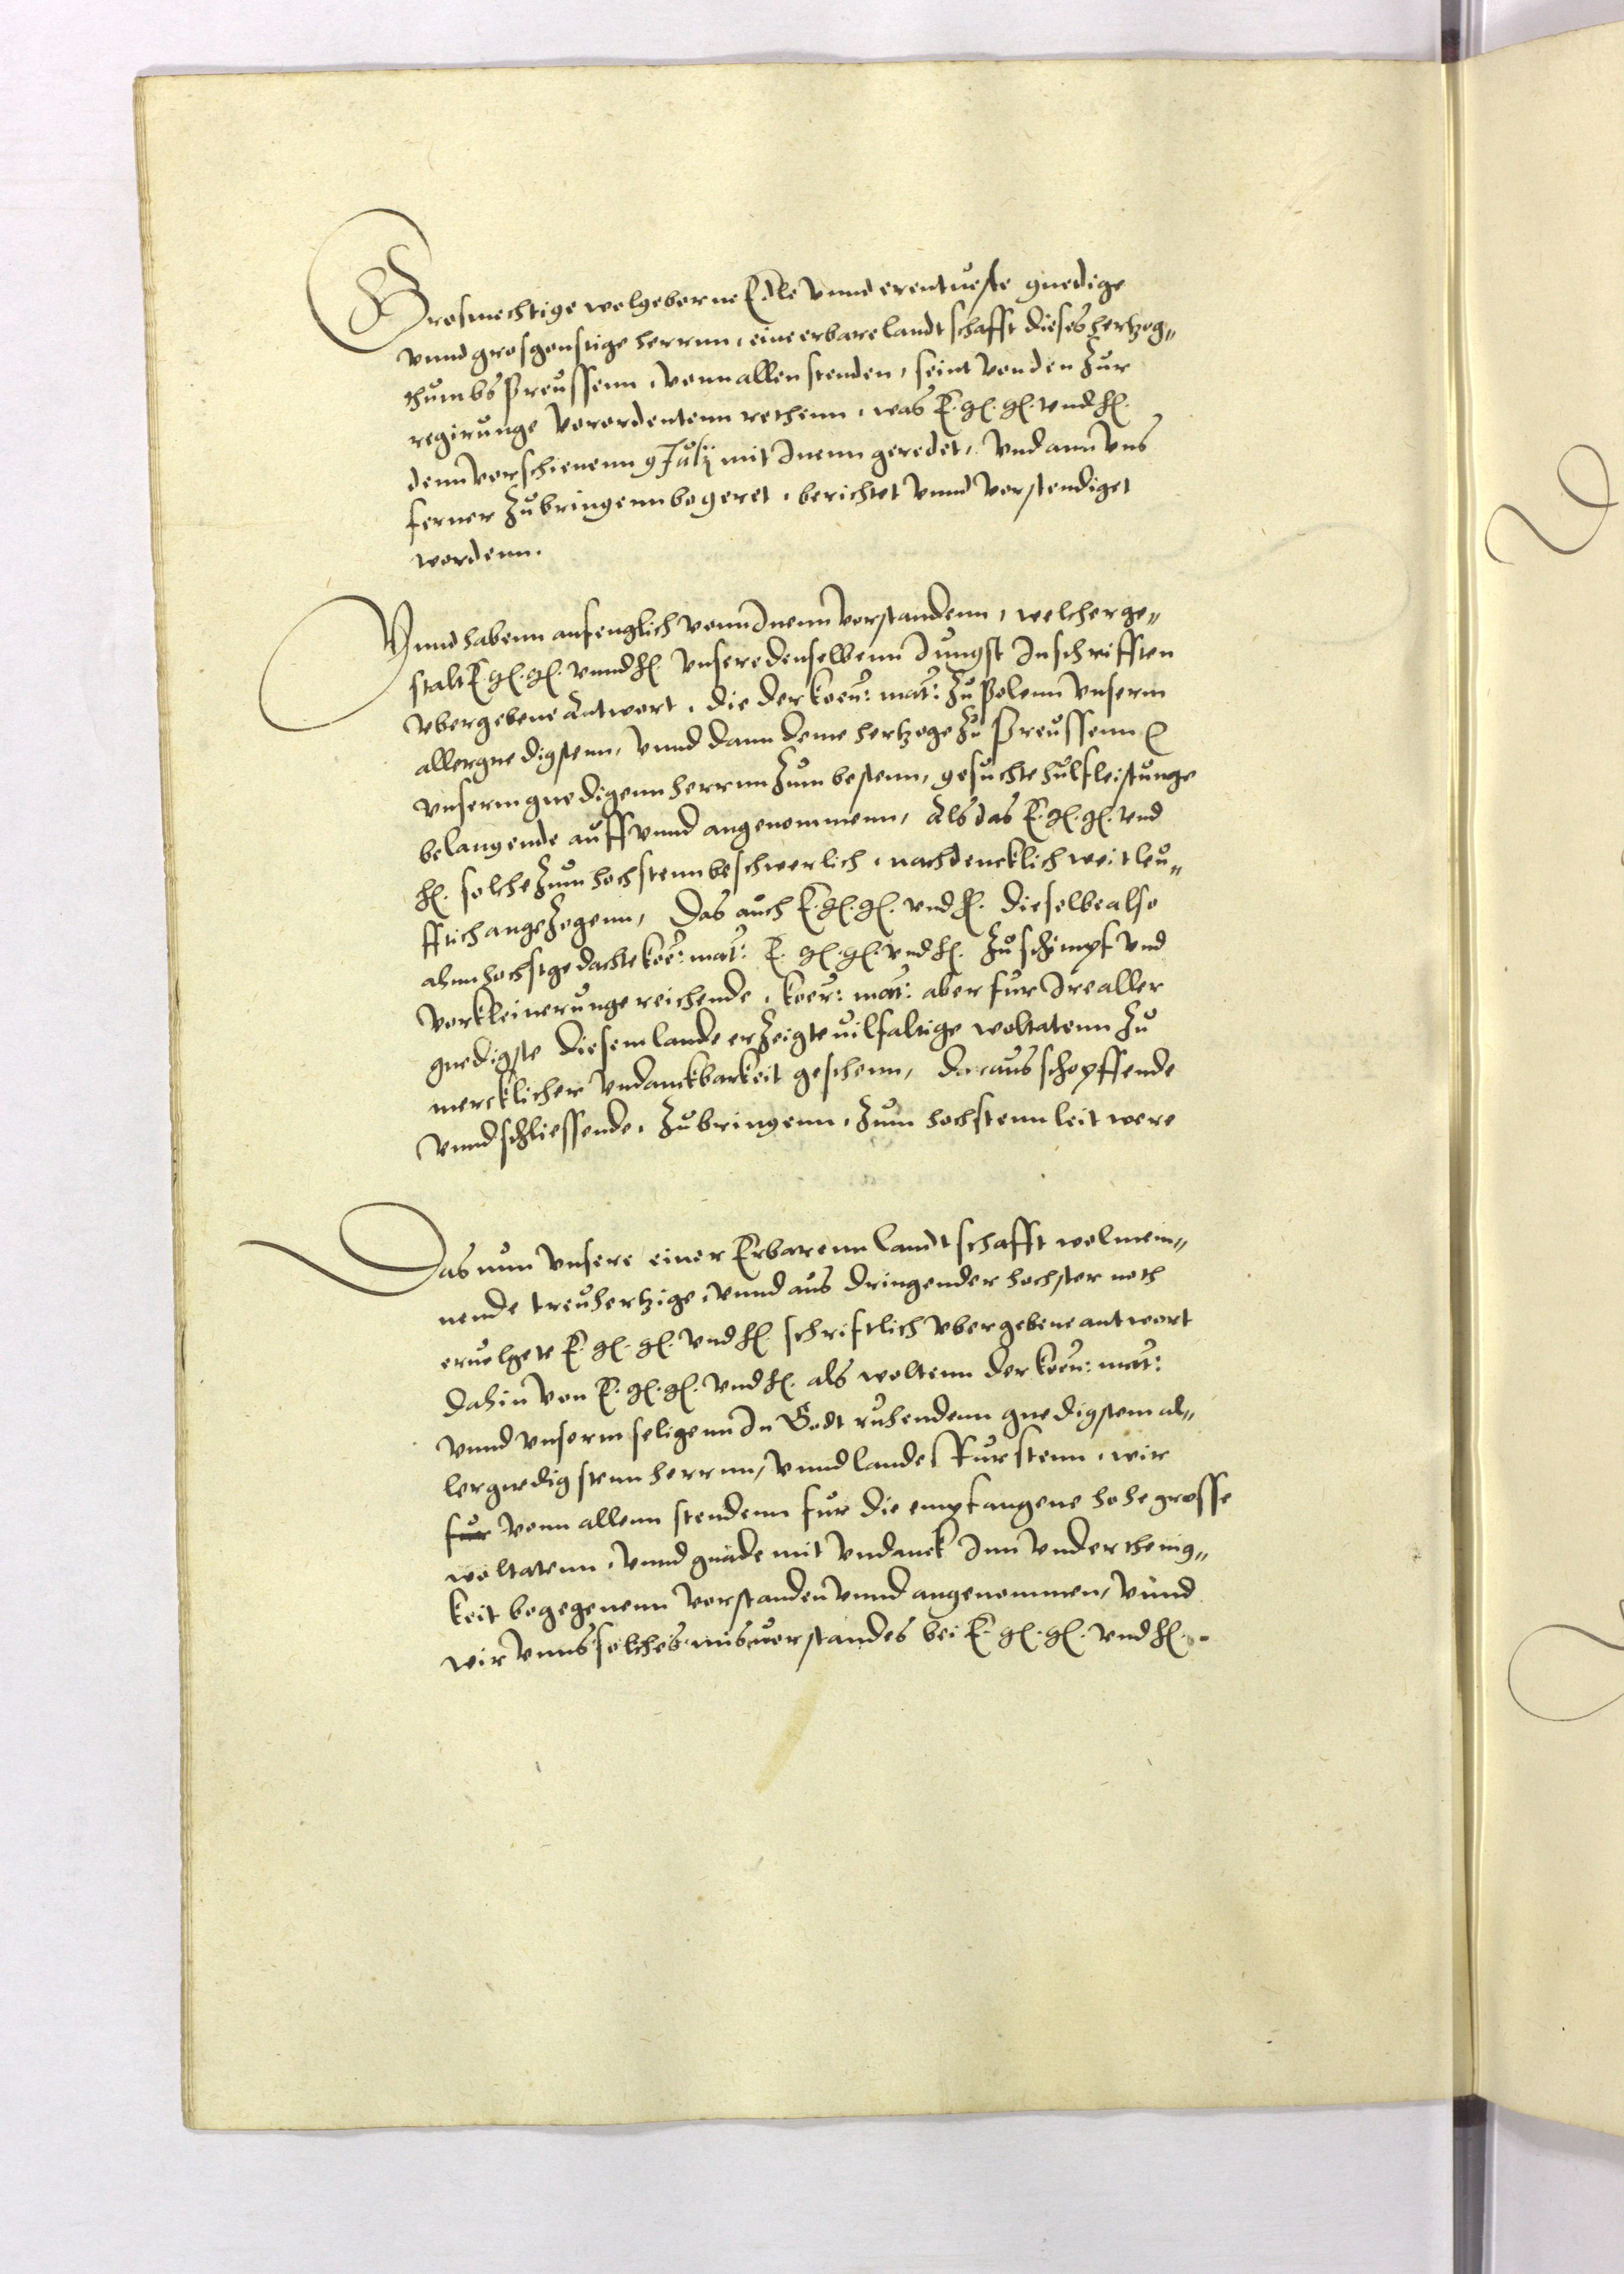 Grosmechtige wolgeborne Edle vnnd erentueste gnedige
vnnd grosgonstige herrnn, eine erbare landtschafft dieses hertzog„
thumbs Preussenn, vonn allen stenden, seint von den zur
regirunge verordentenn rethenn, was E. g. g. vnd h.
denn verschienenn 9 July mit Inenn geredet, vnd ann vns
ferner zubringenn begeret, berichtet vnnd verstendiget
wordenn.
Vnnd habenn anfenglich vonn Inenn verstandenn, welcher ge„
stalt E. g. g. vnnd h. vnsere denselbenn Jungst In schrifften
vbergebene Antwort, die der koen: mat: zu Polenn vnserm
allergnedigstenn, vnnd dann deme hertzoge zu Preussenn
vnserm gnedigenn herrnn zum bestenn, gesuchte hulfleistunge
belangende auff vnnd angenommenn, Als das E. g. g. vnd
h. solche zum hochstenn beschwerlich, nachdencklich weitleu„
fftich angezogenn, Das auch E. g. g. vnd h. dieselbe also
ahnn hochstgedachte koe: mat: E. g. g. vnd h. zu schimpf vnd
verkleinerunge reichende, koer: mat: aber fur Ire aller
gnedigste diesem lande erzeigte vilfaltige woltatenn zu
mercklicher vndanckbarkeit geschenn, daraus schopffende
vnnd schliessende, zubringenn, zum hochstenn leit were
Das nun vnsere einer Erbarenn landtschafft wolmein„
nende treuhertzige, vnnd aus dringender hochster noth
eruolgete E. g. g. vnd h. schriftlich vbergebene antwort
dahin von E. g. g. vnd h. als woltenn der koen: mat:
vnnd vnserm seligenn In Godt ruhendenn gnedigstem al„
lergnedigstenn herrnn, vnnd landesfurstenn, wir
fur vonn allenn stendenn fur die empfangene hohe grosse
woltatenn, vnnd gnade mit vndanck Inn vndertheinig„
keit begegenenn verstanden vnnd angenommen, vnnd
wir vnns solches misverstandes bei E. g. g. vnd h.